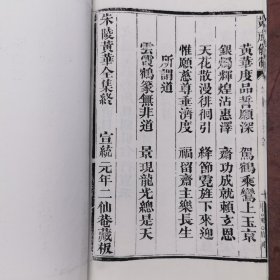 廣成儀制
黃華度品誓願深　駕鶴乘鸞上玉京
銀燭輝煌沾惠澤　齋功成就賴玄恩
天花散漫徘徊引　絳節霓旌下來迎
惟願慈尊垂濟度　福留齋主樂長生
所謂道
雲霞鶴篆無非道　景現龍光總是天
朱陵黃華全集終　宣統元年二仙菴藏板